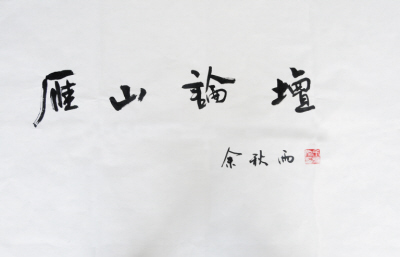 雁山論壇
余秋雨